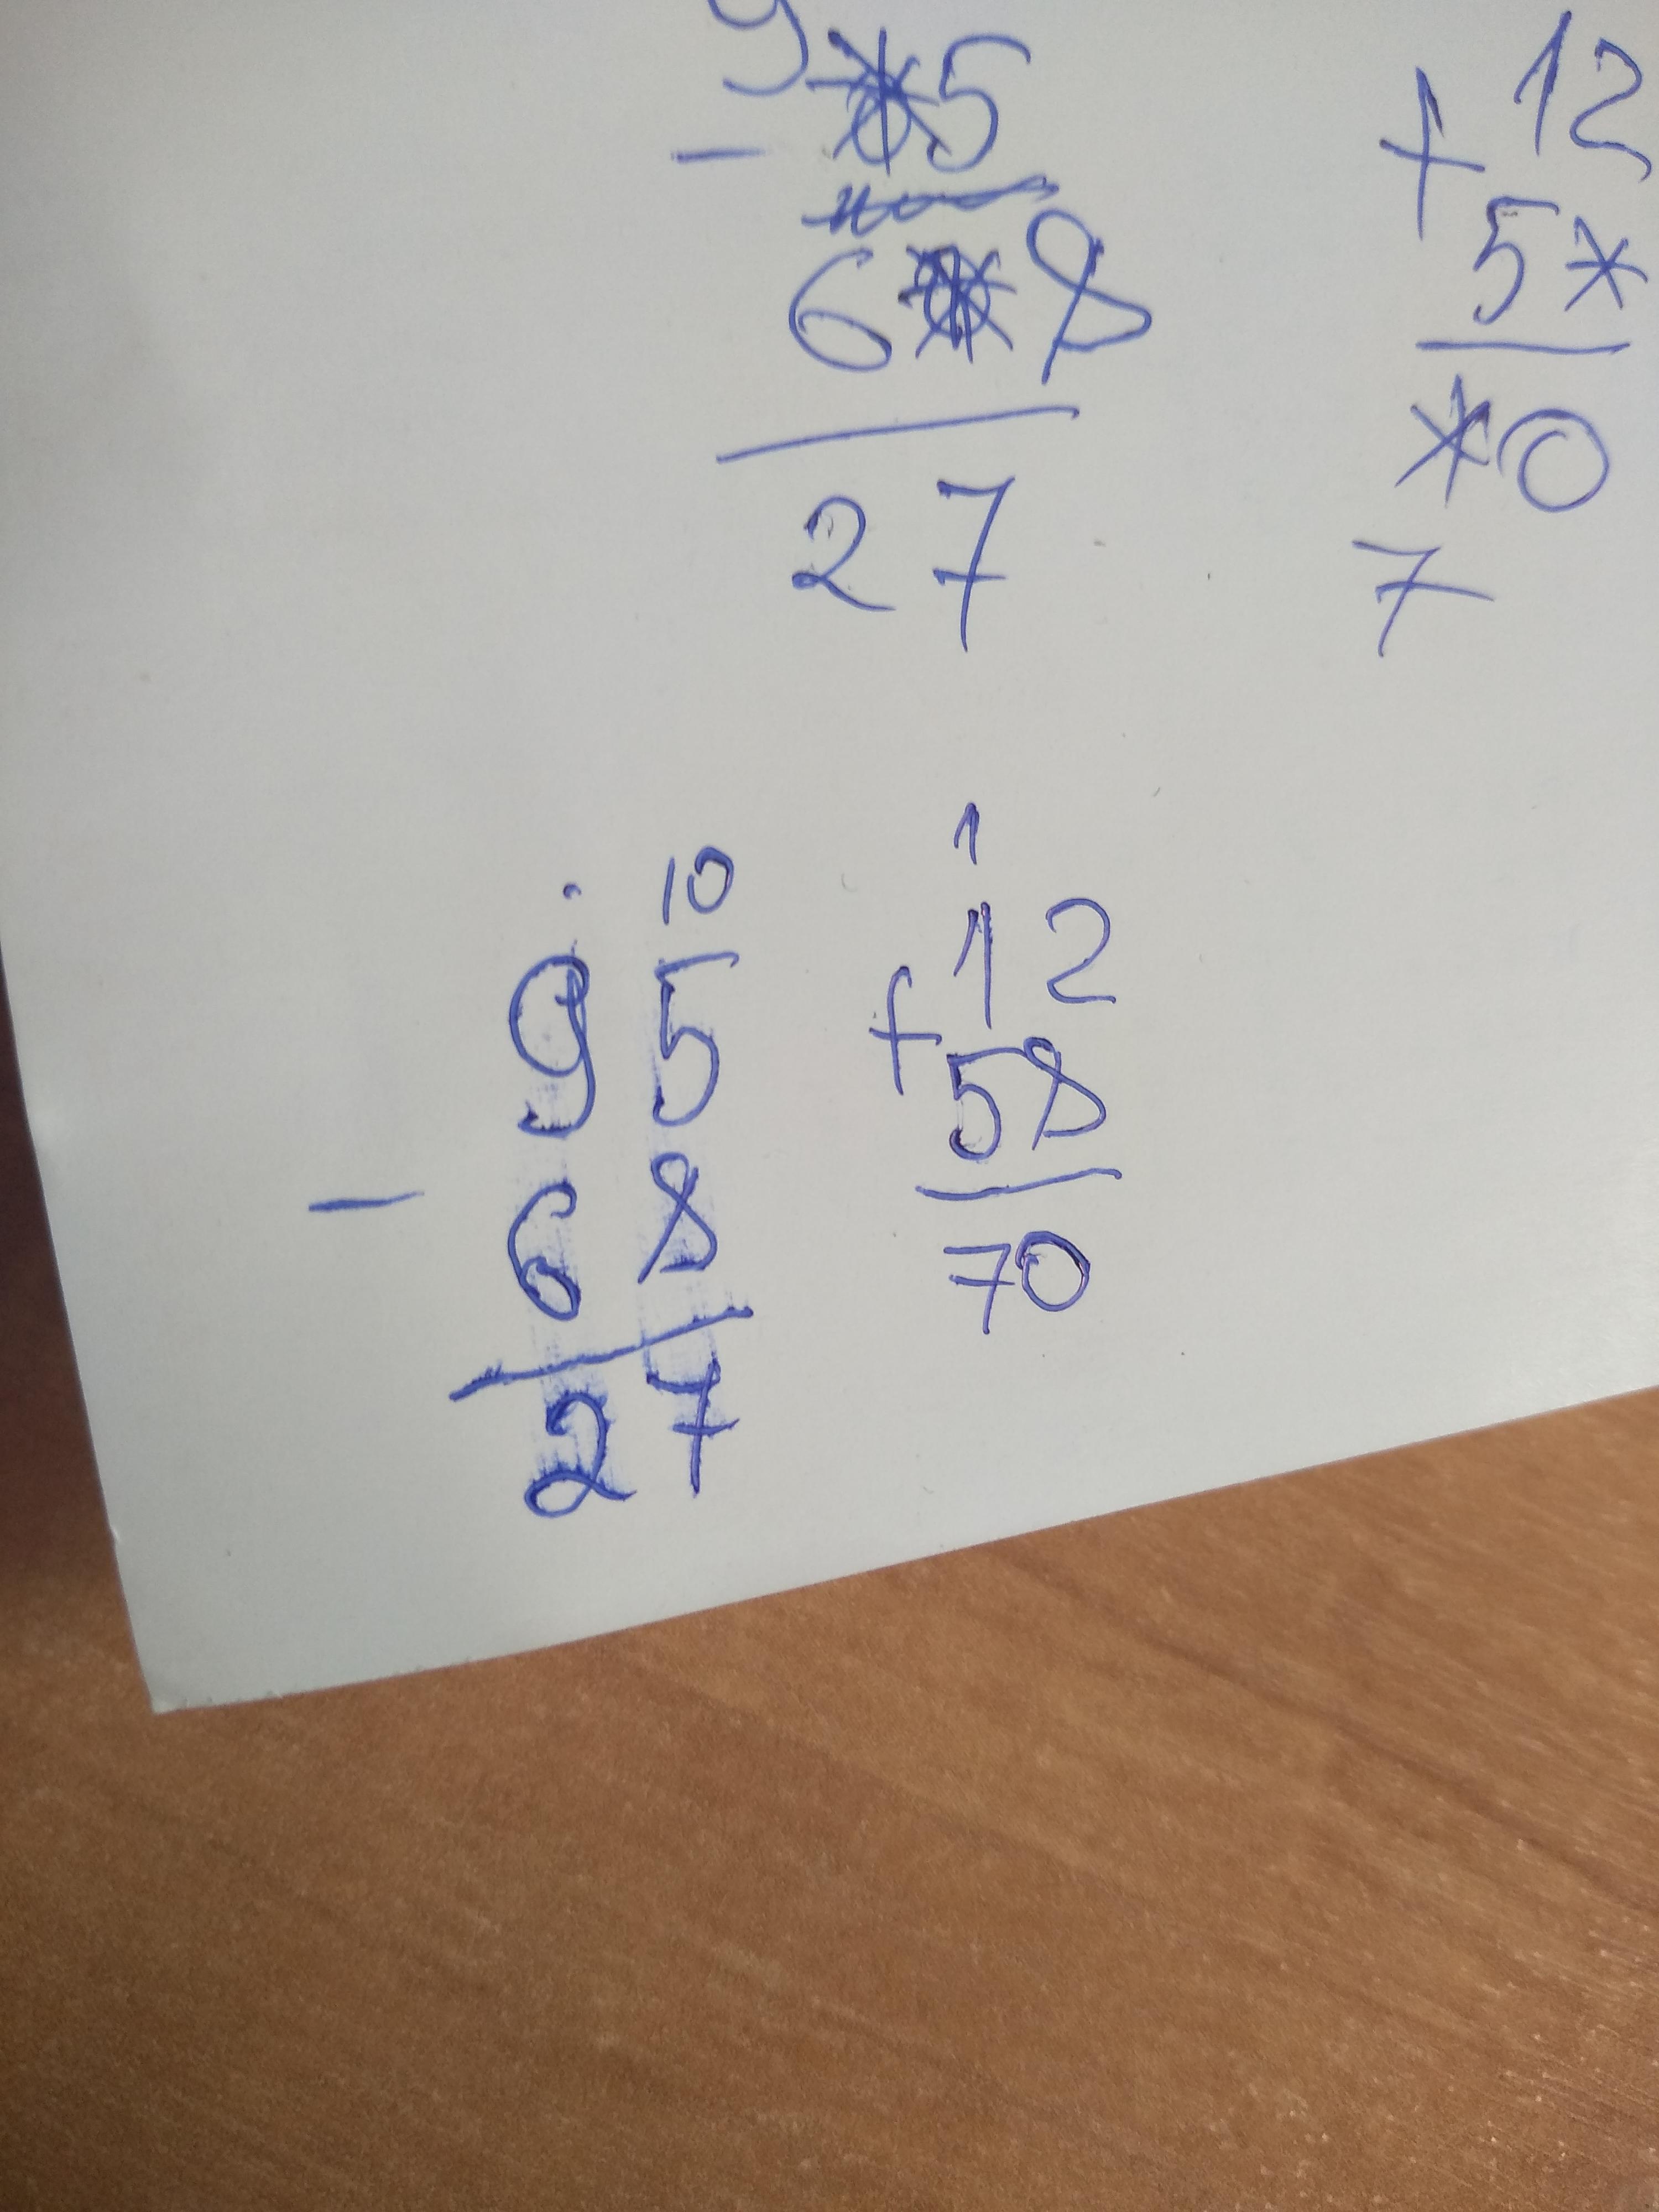 9 *5
-
6* 8
27
12
+
5*
*0
7
10
95
-
68
27
1
12
+
58
70